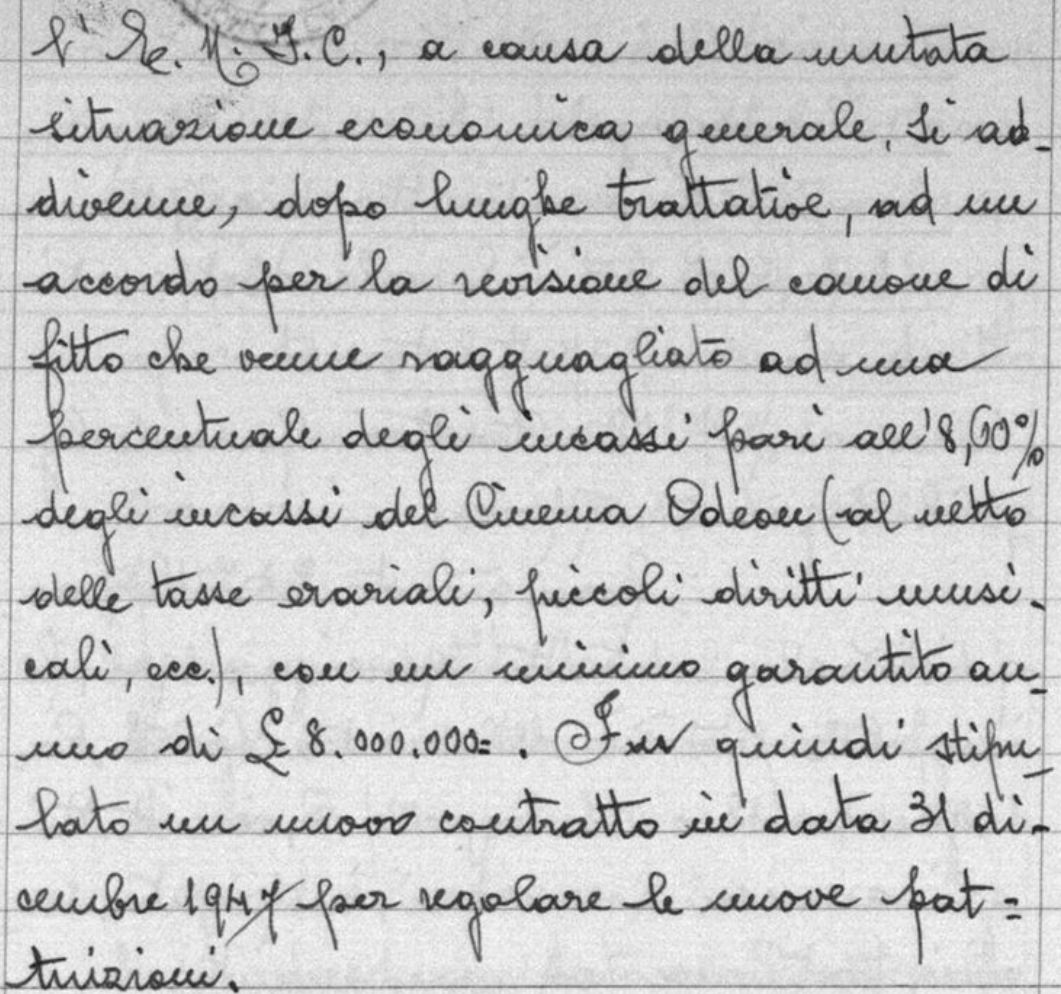 l'E. N. I. C., a causa della mutata
situazione economica generale, si ad-
divenne, dopo lunghe trattative, ad un
accordo per la revisione del canone di
fitto che venne ragguagliato ad una
percentuale degli incassi pari all'8,60%
degli incassi del Cinema Odeon (al netto
delle tasse erariali, piccoli diritti musi-
cali, ecc.), con un minimo garantito an-
nuo di £ 8.000.000=. Fu quindi stipu-
lato un nuovo contratto in data 31 di-
cembre 1947 per regolare le nuove pat=
tuizioni.